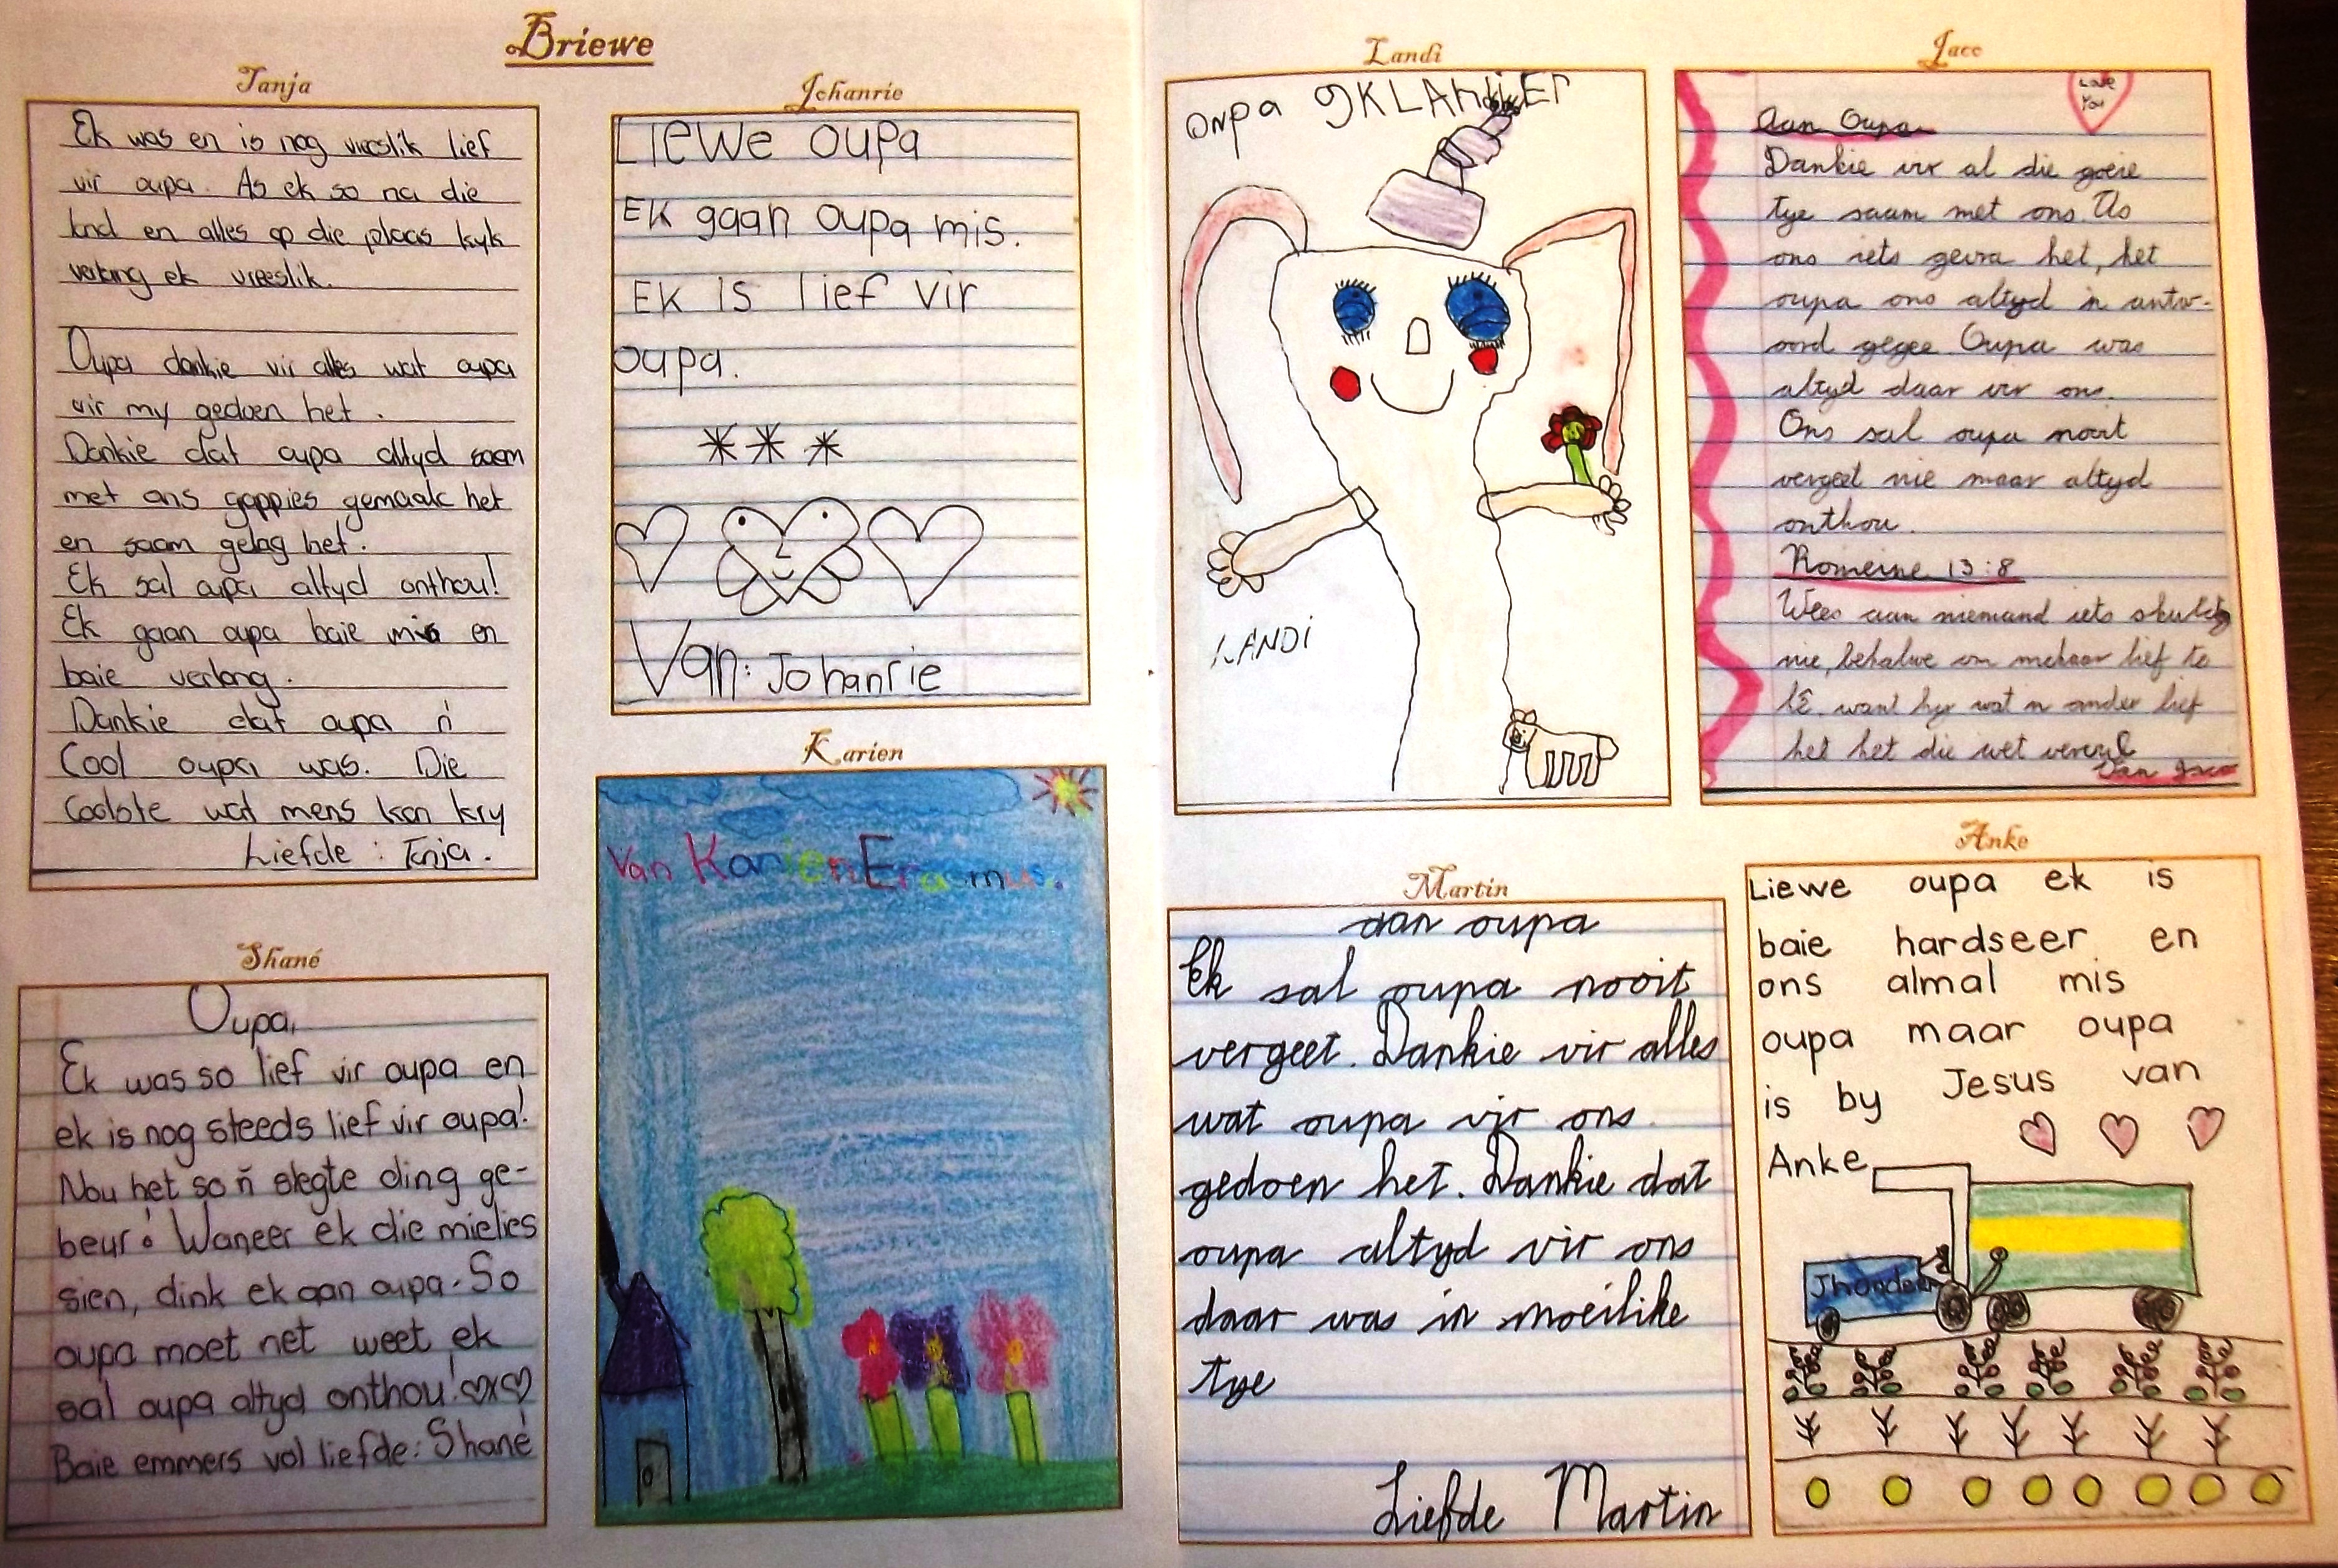 Briewe
Tanja
Ek was en is nog vreeslik lief
vir oupa. As ek so na die
land en alles op die plaas kyk
verlang ek vreeslik.
Oupa dankie vir alles wat oupa
vir my gedoen het.
Dankie dat oupa altyd saam
met ons grappies gemaak het
en saam gelag het.
Ek sal oupa altyd onthou!
Ek gaan oupa baie mis en
baie verlang.
Dankie dat oupa n'
Cool oupa was. Die
Coolste wat mens kan kry
Liefde : Tanja.
Shané
Oupa,
Ek was so lief vir oupa en
ek is nog steeds lief vir oupa!
Nou het so ń slegte ding ge-
beur! Waneer ek die mielies
sien, dink ek aan oupa. So
oupa moet net weet ek
sal oupa altyd onthou!
Baie emmers vol liefde: Shané
Johanrie
Liewe oupa
Ek gaan oupa mis.
Ek is lief vir
oupa.
Van: Johanrie
Karien
Van Karien Erasmus.
Landi
oupa
LANDi
Jaco
Love
You
Aan Oupa
Dankie vir al die goeie
tye saam met ons. As
ons iets gevra het, het
oupa ons altyd 'n antw-
oord gegee. Oupa was
altyd daar vir ons.
Ons sal oupa nooit
vergeet nie maar altyd
onthou.
Romeine 13:8
Wees aan niemand iets skuldig
nie, behalwe om mekaar lief te
hê. want hy wat n ander lief
het het die wet vervul
Van Jaco
Martin
aan oupa
Ek sal oupa nooit
vergeet. Dankie vir alles
wat oupa vir ons
gedoen het. Dankie dat
oupa altyd vir ons
daar was in moeilike
tye
Liefde Martin
Anke
Liewe oupa ek is
baie hardseer en
ons almal mis
oupa maar oupa
is by Jesus van
Anke
Jhondeer